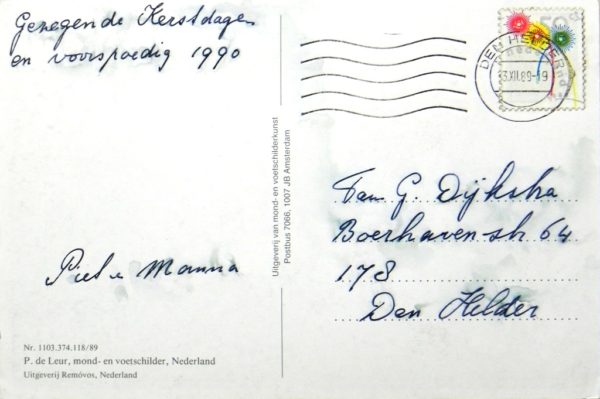 Gezegende Kerstdagen
en voorspoedig 1990
Piet e Manna
Nr. 1103.374.118/89
P. de Leur, mond- en voetschilder, Nederland
Uitgeverij Removos, Nederland
Uitgeverij van mond- en voetschilderkunst
Postbus 7066, 1007 JB Amsterdam
DEN HELDER
XII.89-19
Fam G. Dijkstra
Boerhaven-str 64
178
Den Helder